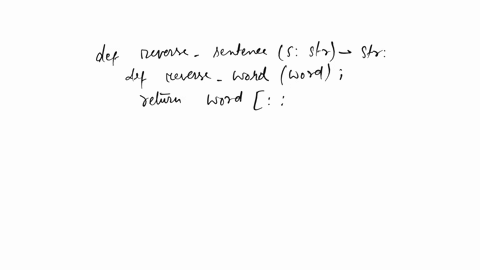 def reverse_sentence (s: str) → str:
def reverse_word (word) ;
return word [: :